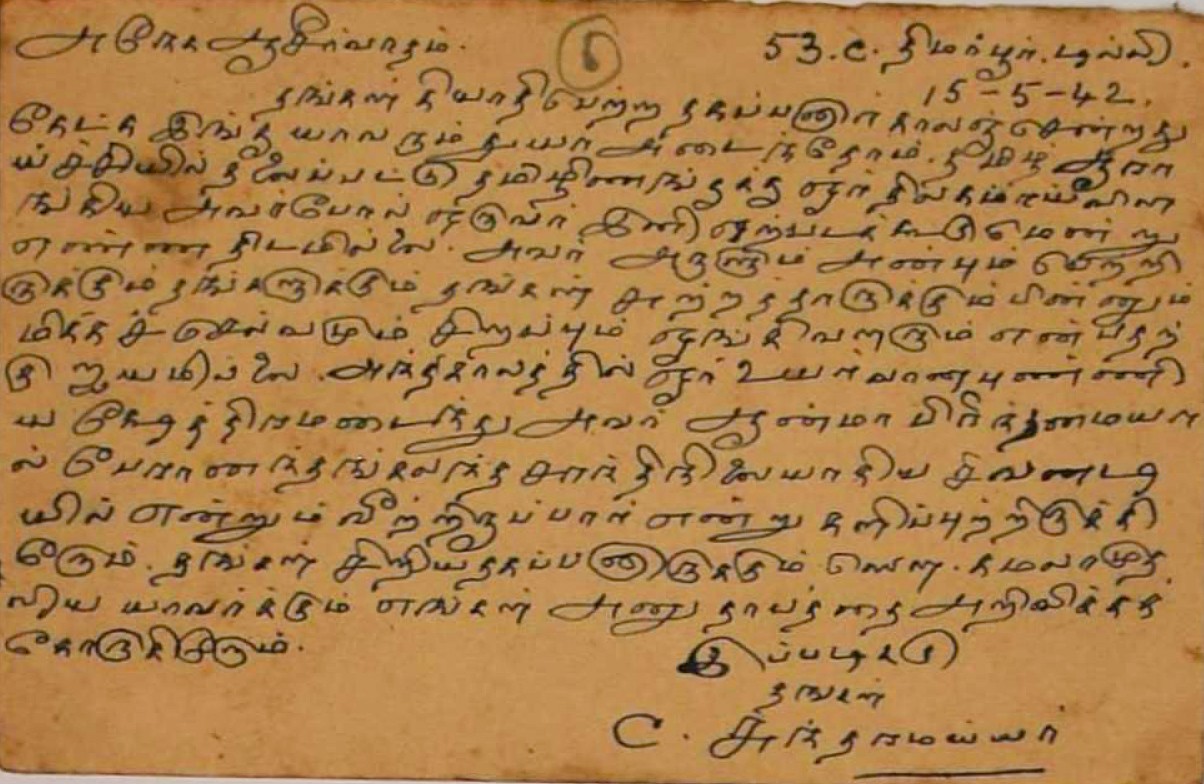 அநேக ஆசீர்வாதம். 6 53.C. திமார்பூர். டில்லி.
15-5-42.
தங்கள் கியாதிபெற்ற தகப்பனார் காலஞ்சென்றது
கேட்க இங்கு யாவரும் துயர் அடைந்தோம். தமிழ் ஆரா
ய்ச்சியில் தலைப்பட்டு தமிழிணங்குக்கு ஓர் திலகமாய் விள
ங்கிய அவர்போல் ஒருவர் இனி ஏற்படக்கூடுமென்று
எண்ண திடமில்லை. அவர் அருளும் அன்பும் பெற்றி
ருக்கும் தங்களுக்கும் தங்கள் சுற்றத்தாருக்கும் பின்னும்
மிக்கச் செல்வமும் சிறப்பும் ஓங்கிவளரும் என்பதற்
கு ஐயமில்லை. அந்திகாலத்தில் ஓர் உயர்வான புண்ணி
ய க்ஷேத்திரமடைந்து அவர் ஆன்மா பிரிந்தமையா
ல் பேரானந்தங்கலந்த சாந்திநிலையாகிய சிவனடி
யில் என்றும் வீற்றிருப்பார் என்று களிப்புற்றிருக்கி
றோம். தங்கள் சிறிய தகப்பனாருக்கும் ஸௌ. கமலாமுத
லிய யாவர்க்கும் எங்கள் அனுதாபத்தை அறிவிக்கக்
கோருகிறோம்.
இப்படிக்கு
தங்கள்
C. சுந்தரமய்யர்